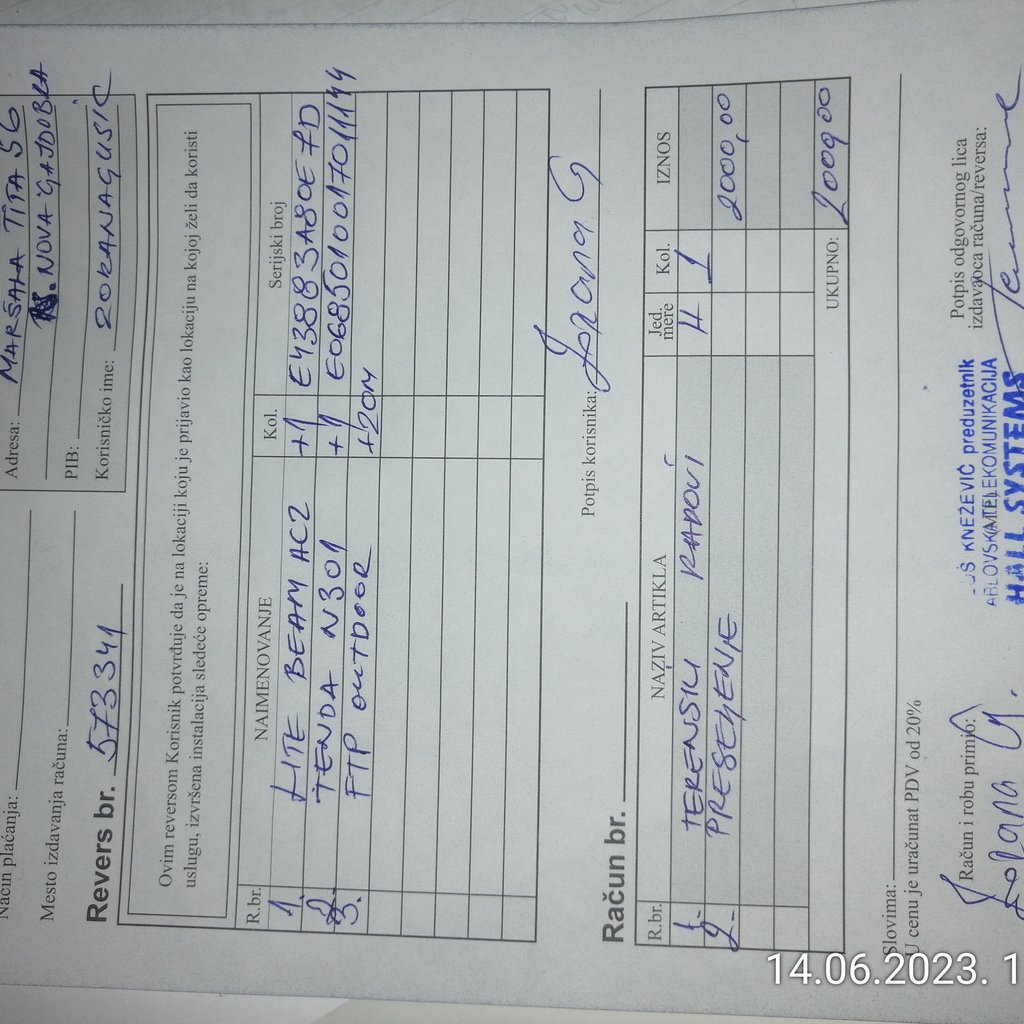 Način plaćanja:
Mesto izdavanja računa:
Adresa: MARŠALA TITA 56
NOVA GAJDOBRA
PIB:
Korisničko ime: ZORANAGUSIC
Revers br. 573341
Ovim reversom Korisnik potvrđuje da je na lokaciji koju je prijavio kao lokaciju na kojoj želi da koristi
uslugu, izvršena instalacija sledeće opreme:
R.br. NAIMENOVANJE Kol. Serijski broj
1. LITE BEAM AC2 +1 E43883A80E7D
2. TENDA N301 +1 E0685010017011144
3. FTP OUTDOOR +20M
Potpis korisnika: Zorana G
Račun br.
R.br. NAZIV ARTIKLA Jed. mere Kol. IZNOS
1. TERENSKI RADOVI H 1 2000,00
2. PRESELJENJE
UKUPNO: 2000,00
Slovima:
U cenu je uračunat PDV od 20%
Račun i robu primio:
Zorana G.
KNEŽEVIĆ preduzetnik
HALL SYSTEMS
Potpis odgovornog lica
izdavaoca računa/reversa:
14.06.2023. 1